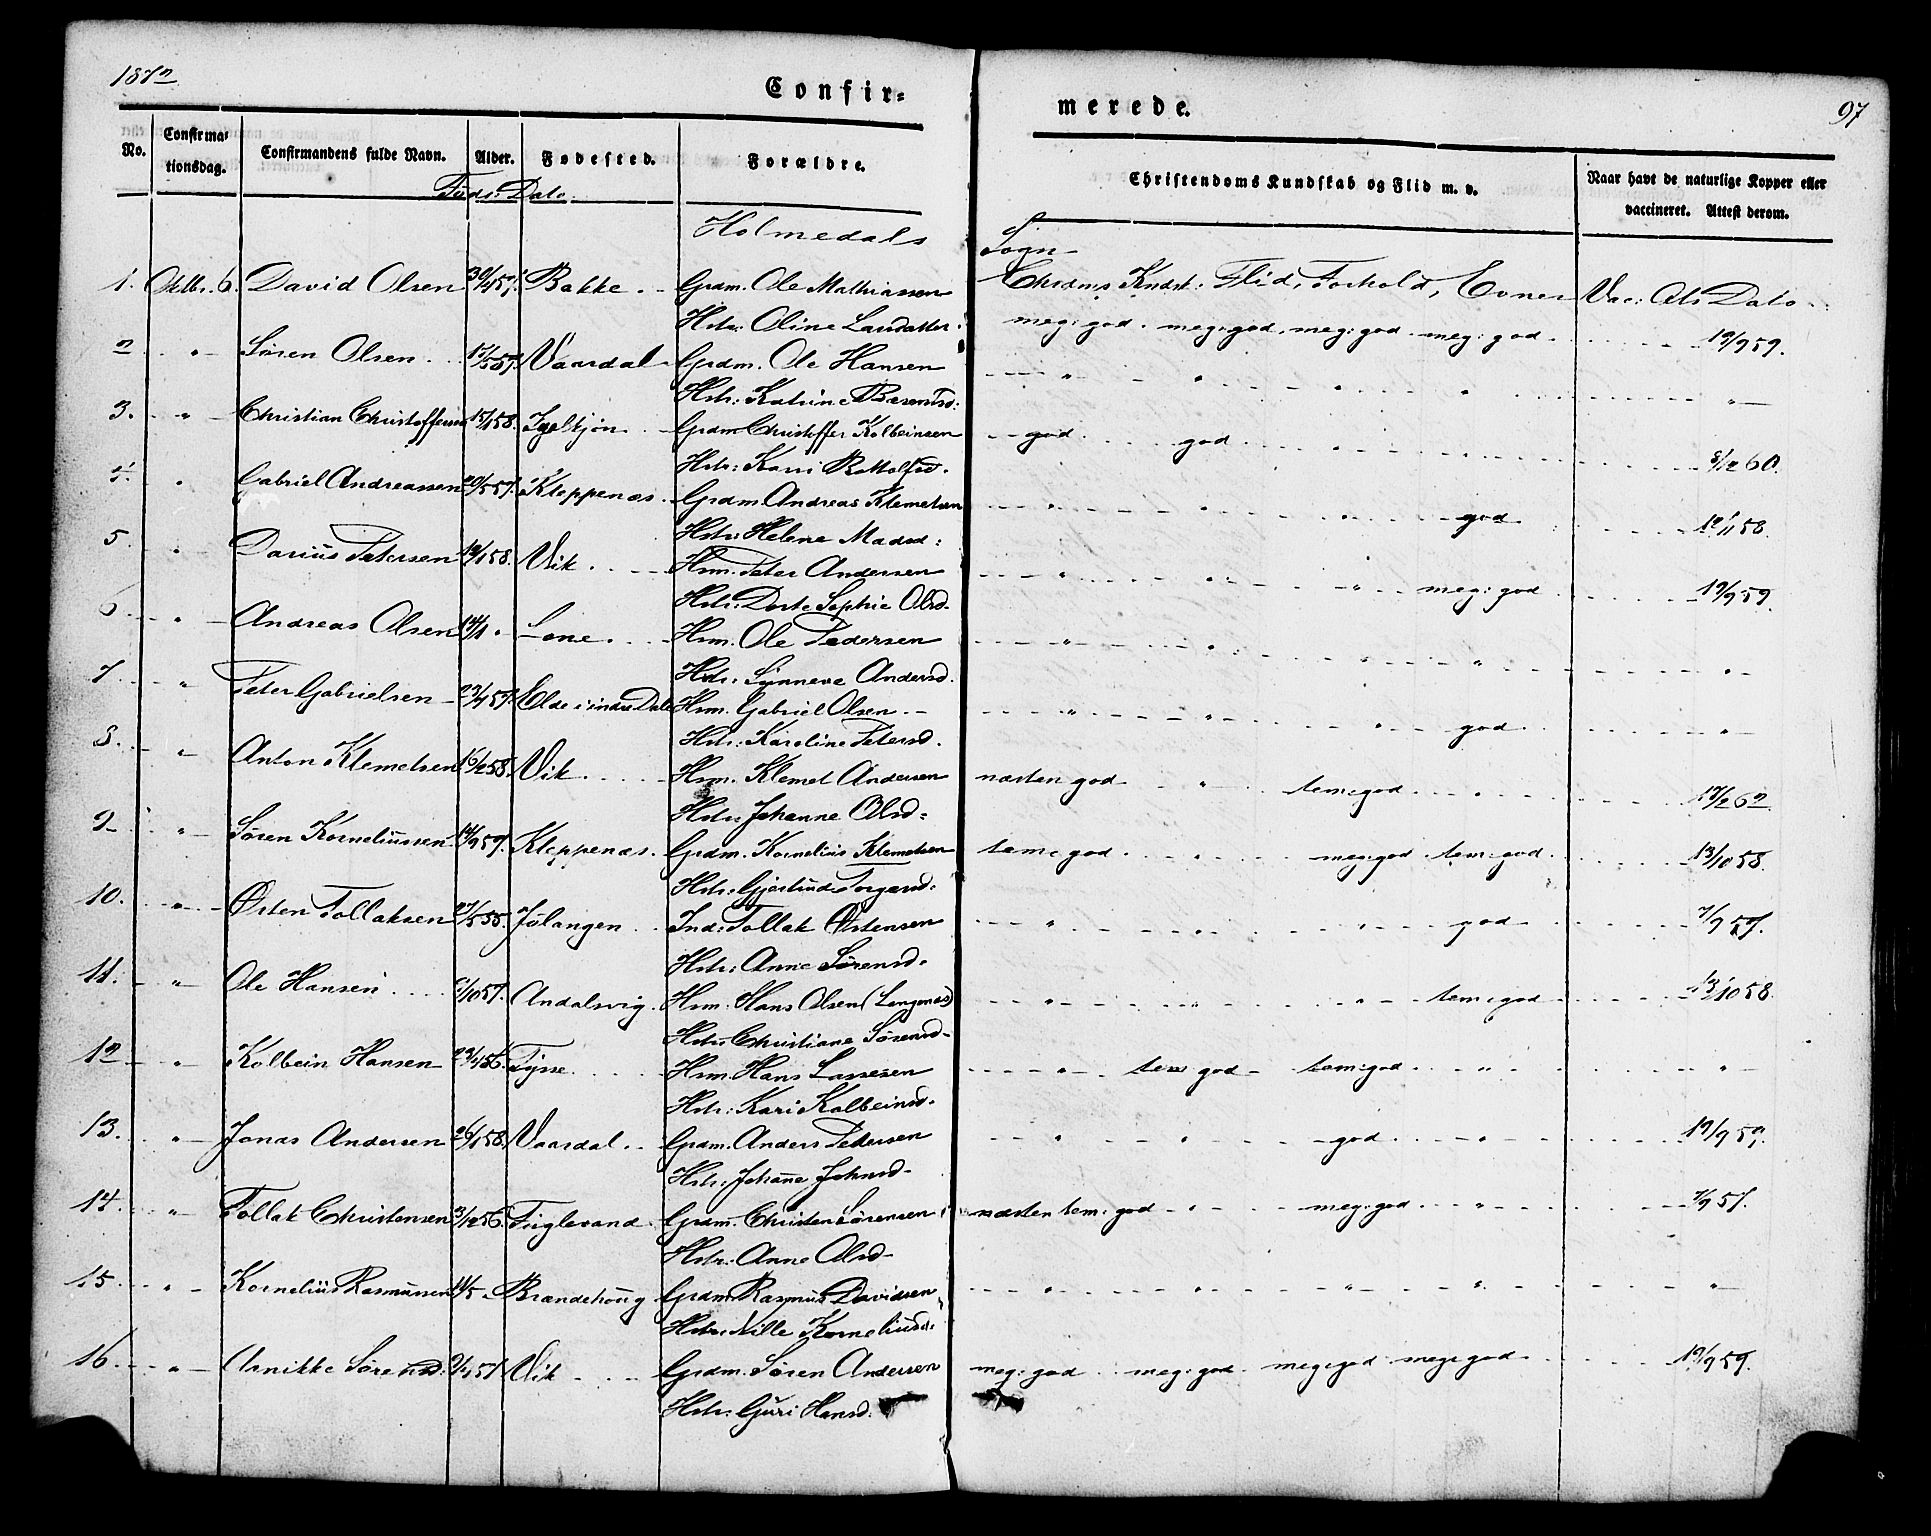 1872
Confir=
merede.
97
No.
Confirma=
tionsdag.
Confirmandens fulde Navn.
Alder.
Fødested.
Forældre.
Christendoms Kundskab og Flid m. v.
Naar havt de naturlige Kopper eller
vaccineret. Attest derom.
Føds: Dato.
Holmedals Sogn
Chrdms Kndsk: Flid, Forhold, Evner Vac: Ats Dato
1. Oktbr. 6. David Olsen 30/4 57. Bakke. Grdm. Ole Mathiassen
Hstr: Oline Larsdatter. meg: god. meg: god. meg: god. meg: god. 19/9 59.
2 " Søren Olsen 15/5 57. Vaardal Grdm. Ole Hansen
Hstr: Katrine Berentsd: " " " " "
3. " Christian Christoffersen 15/1 58. Ygelkjøn Grdm Christoffer Kolbeinsen
Hstr: Kari Bottolfsd. god god 8/12 60.
4. " Gabriel Andreassen 20/5 57. Kleppenæs. Grdm Andreas Klemetsen
Hstr: Helene Madsd: " " " god 12/11 58.
5. " Darius Petersen 12/1 58. Vik. Hsm. Peter Andersen
Hstr: Dorte Sophie Olsd. " " " meg: god 19/9 59.
6 " Andreas Olsen 14/1 " Lone. Hsm. Ole Pedersen
Hstr: Synneve Andersd. " " " " "
7. " Peter Gabrielsen 23/4 57. Elde i indre Dale Hsm. Gabriel Olsen
Hstr: Karoline Petersd. " " " god "
8. " Anton Klemetsen 16/2 58. Vik. Hsm. Klemet Andersen
Hstr: Johanne Olsd: næsten god " tem: god " 17/2 62
9 " Søren Korneliussen 14/9 57. Kleppenæs. Grdm. Kornelius Klemetsen
Hstr: Gjertrud Torgersd: tem: god " meg: god tem: god 13/10 58.
10. " Østen Tollaksen 27/5 55. Jølangen Ind: Tollak Østensen
Hstr: Anne Sørensd. " " " god 7/9 57.
11. " Ole Hansen 6/10 57. Andalsvig. Hsm. Hans Olsen (Langenæs)
Hstr: Christiane Sørensd. " " " tem: god 13/10 58.
12 " Kolbein Hansen 23/4 56. Tysse. Hsm. Hans Lassesen
Hstr: Kari Kolbeinsd. " tem god tem: god " "
13. " Jonas Andersen 26/1 58. Vaardal. Grdm. Anders Petersen
Hstr: Johanne Johnsd. " " god " 19/9 59.
14. " Tollak Christensen 3/12 56. Fuglevand. Grdm. Christen Sørensen
Hstr: Anne Olsd. næsten tem: god " meg: god " 7/9 57.
15. " Kornelius Rasmussen 11/5 " Brandehoug Grdm Rasmus Davidsen
Hstr: Nille Korneliusd. " " " " "
16. " Annikke Sørensd: 9/7 57. Vik Grdm. Søren Andersen
Hstr: Guri Hansd. meg: god meg: god meg: god meg: god 19/9 59.